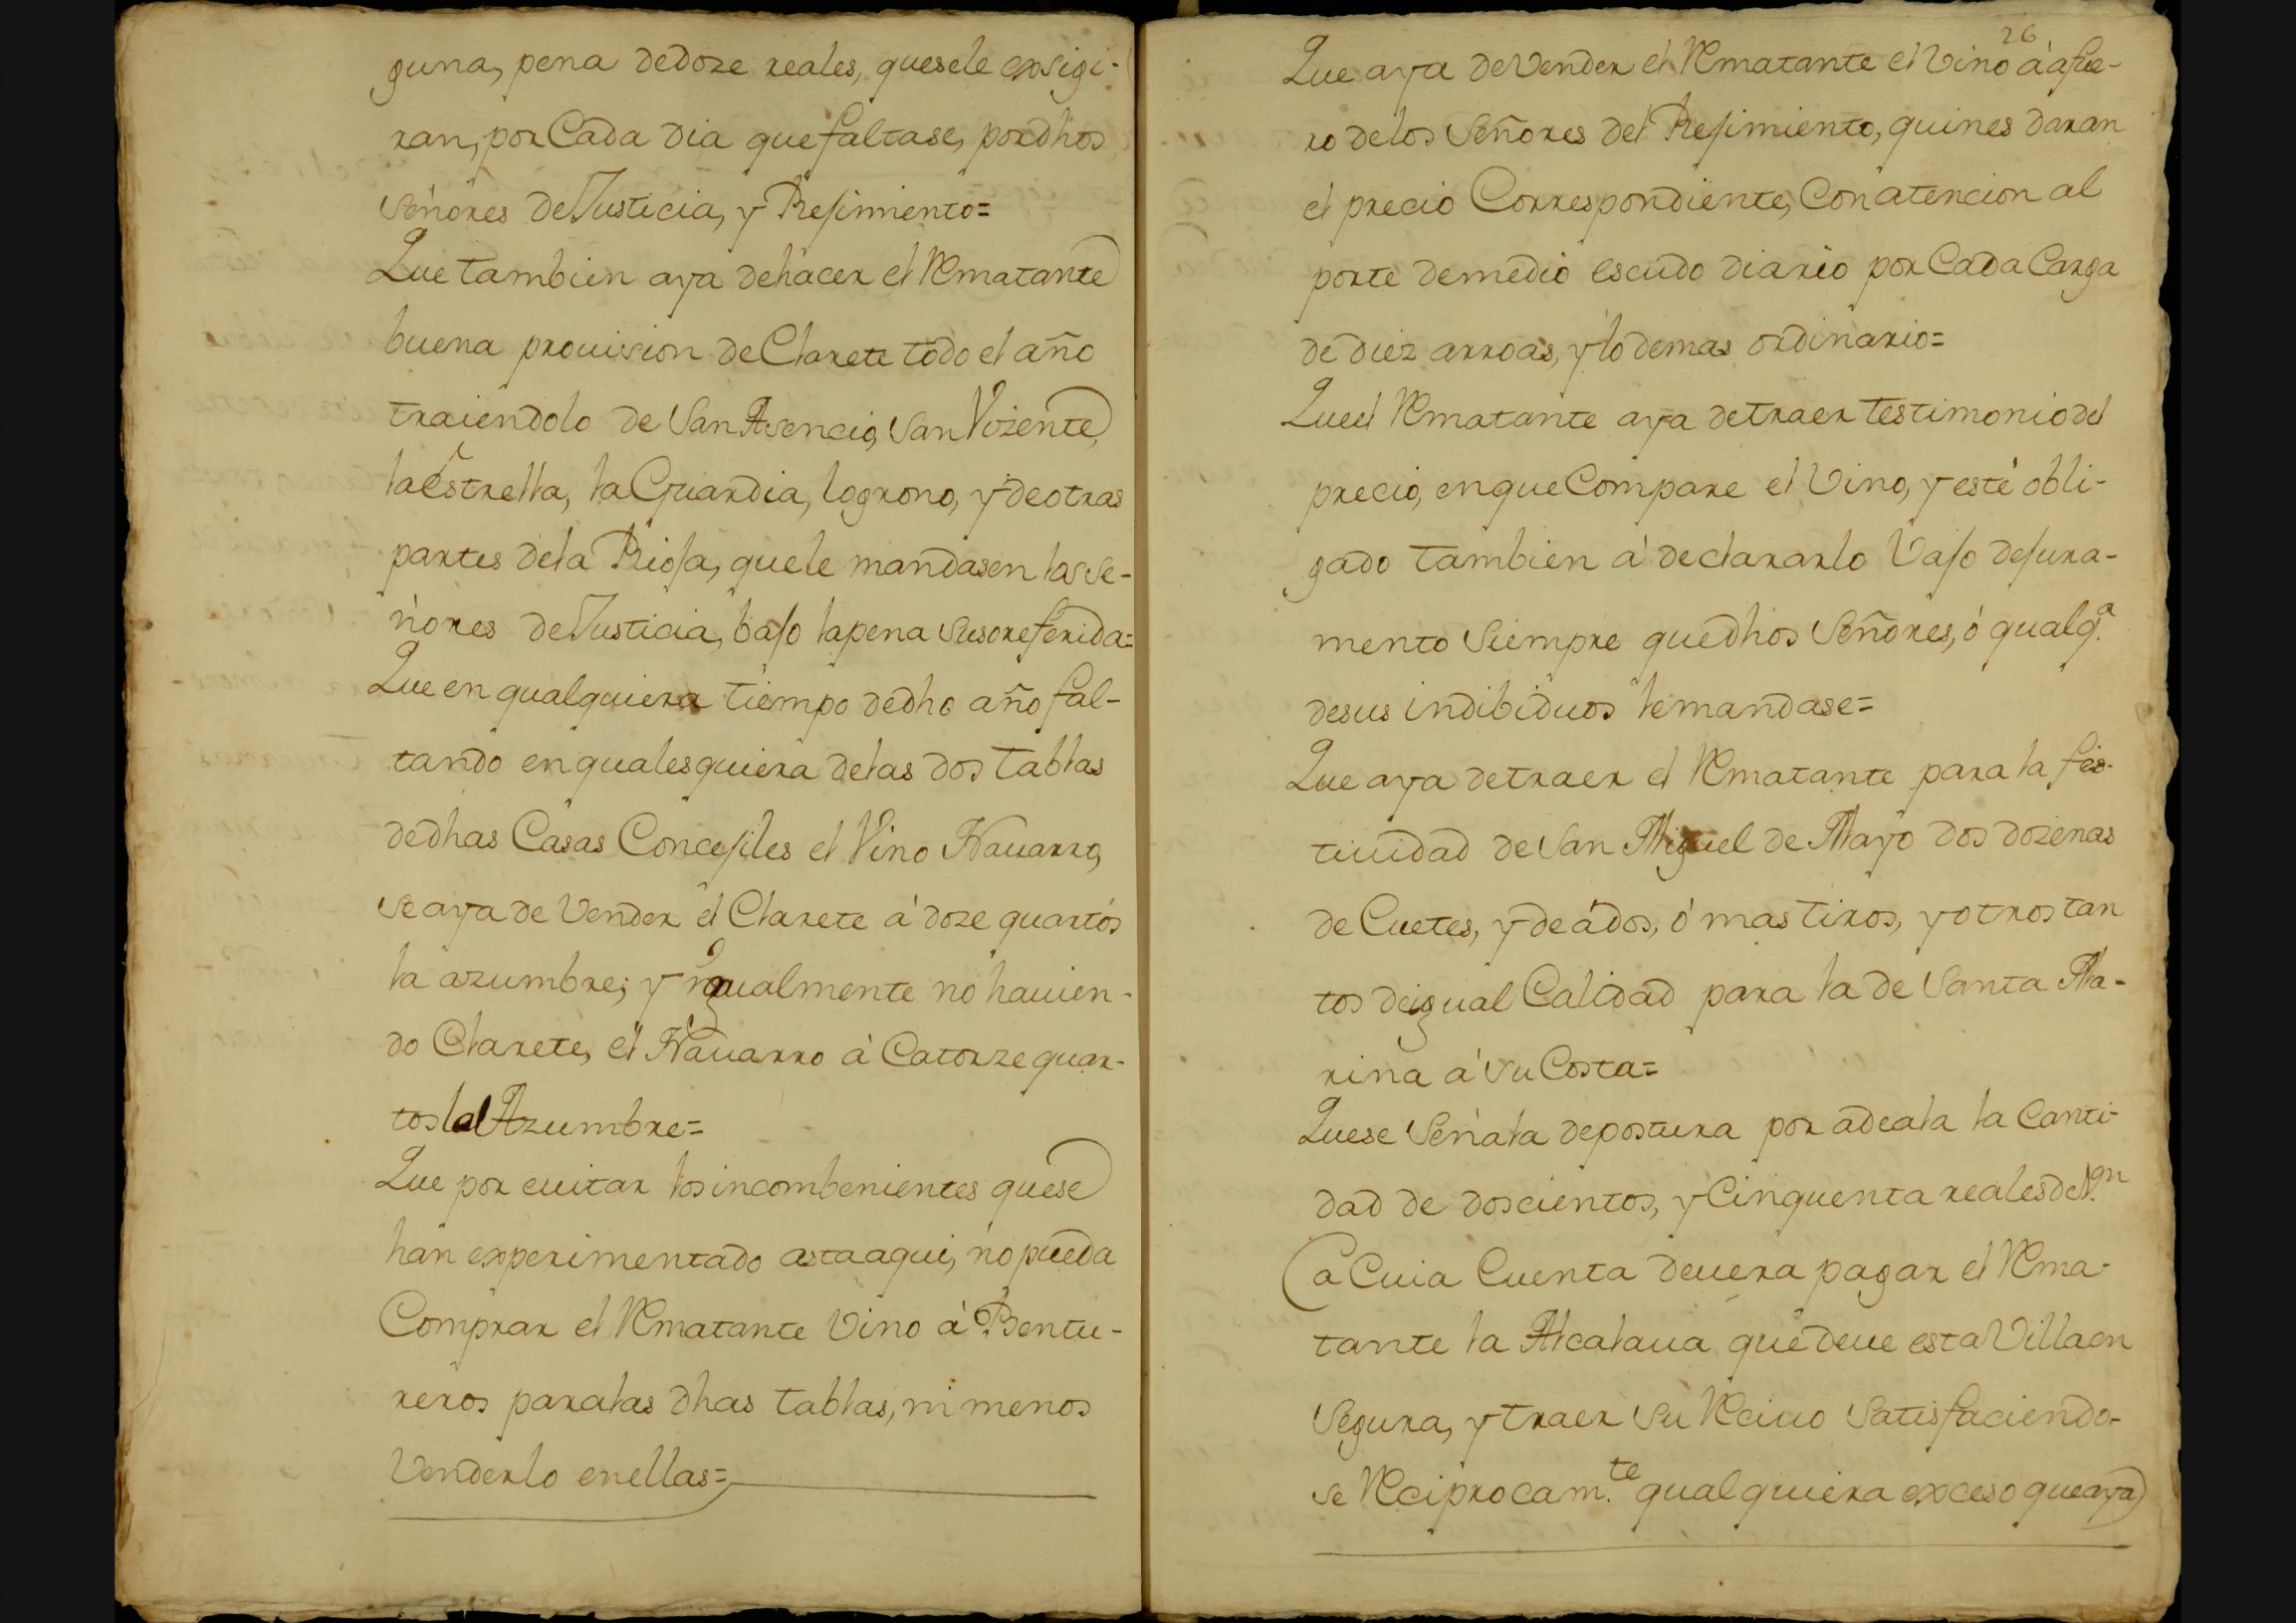 guna, pena de doze reales, quesele exsigi-
ran, por Cada dia que faltase, por dhos
señores de Justicia, y Rejimiento=
Que tambien aya de hacer el Rematante
buena prouision de Clarete todo el año
traiendolo de San Asencio, San Vizente,
la Estrella, la Guardia, logrono, y de otras
partes de la Rioja, que le mandasen los se-
ñores de Justicia, bajo la pena susoreferida=
Que en qualquiera tiempo de dho año fal-
tando en qualesquiera de las dos tablas
de dhas Casas Concejiles el Vino Nauarro,
se aya de Vender el Clarete á doze quartos
la azumbre; y igualmente no hauien-
do Clarete, el Nauarro á Catorze quar-
tos la Azumbre=
Que por euitar los incombenientes que se
han experimentado asta aqui, no pueda
Comprar el Rematante Vino á Bentu-
reros para las dhas tablas, ni menos
Venderlo en ellas=
26
Que aya de Vender el Rematante el Vino á afue-
ro de los Señores del Rejimiento, quines daran
el precio Correspondiente, Con atencion al
porte de medio escudo diario por Cada Carga
de diez arroas, y lo demas ordinario=
Que el Rematante aya de traer testimonio del
precio, en que Compare el Vino, y esté obli-
gado tambien á declararlo Vajo de jura-
mento Siempre que dhos Señores, ó qualq.a
de sus indibiduos le mandase=
Que aya de traer el Rematante para la fes-
tiuidad de San Miguel de Mayo dos dozenas
de Cuetes, y de á dos, ó mas tiros, y otros tan
tos de igual Calidad para la de Santa Ma-
rina á su Costa=
Que se Señala de postura por adeala la Canti-
dad de doscientos, y Cinquenta reales de V.on
(a Cuia Cuenta deuera pagar el Rema-
tante la Alcalaua que deue esta Villa en
Segura, y traer su Reciuo Satisfaciendo-
se Reciprocam.te qualquiera exceso que aya)